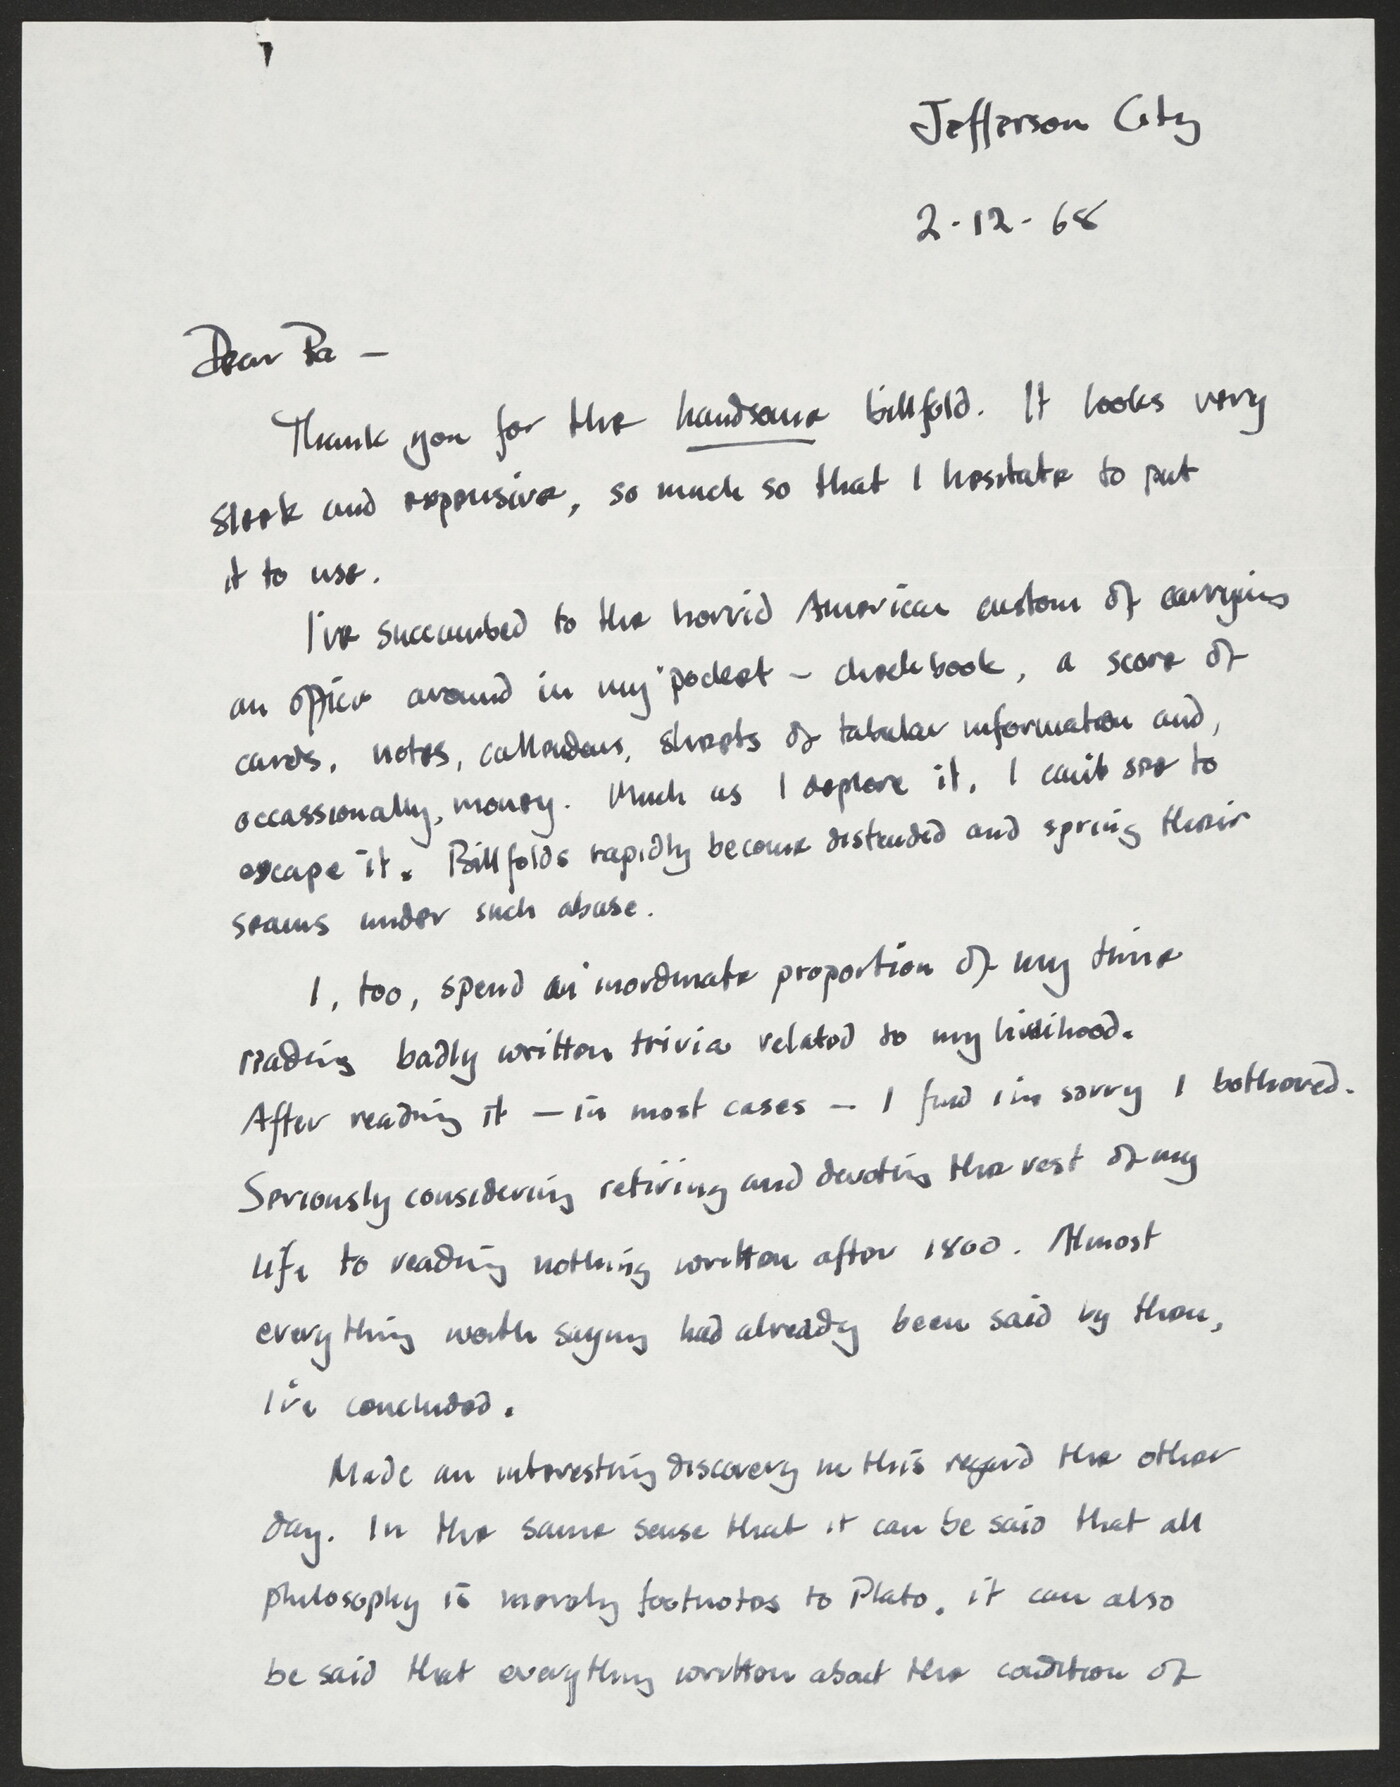 Jefferson City
2-12-68
Dear Pa —
Thank you for the handsome billfold. It looks very
sleek and expensive, so much so that I hesitate to put
it to use.
I've succumbed to the horrid American custom of carrying
an office around in my pocket — checkbook, a score of
cards, notes, callendars, sheets of tabular information and,
occassionally, money. Much as I deplore it, I can't see to
escape it. Billfolds rapidly become distended and spring their
seams under such abuse.
I, too, spend an inordinate proportion of my time
reading badly written trivia related to my livlihood.
After reading it — in most cases — I find i'm sorry I bothered.
Seriously considering retiring and devoting the rest of my
life to reading nothing written after 1800. Almost
everything worth saying had already been said by then,
I've concluded.
Made an interesting discovery in this regard the other
day. In the same sense that it can be said that all
philosophy is merely footnotes to Plato, it can also
be said that everything written about the condition of